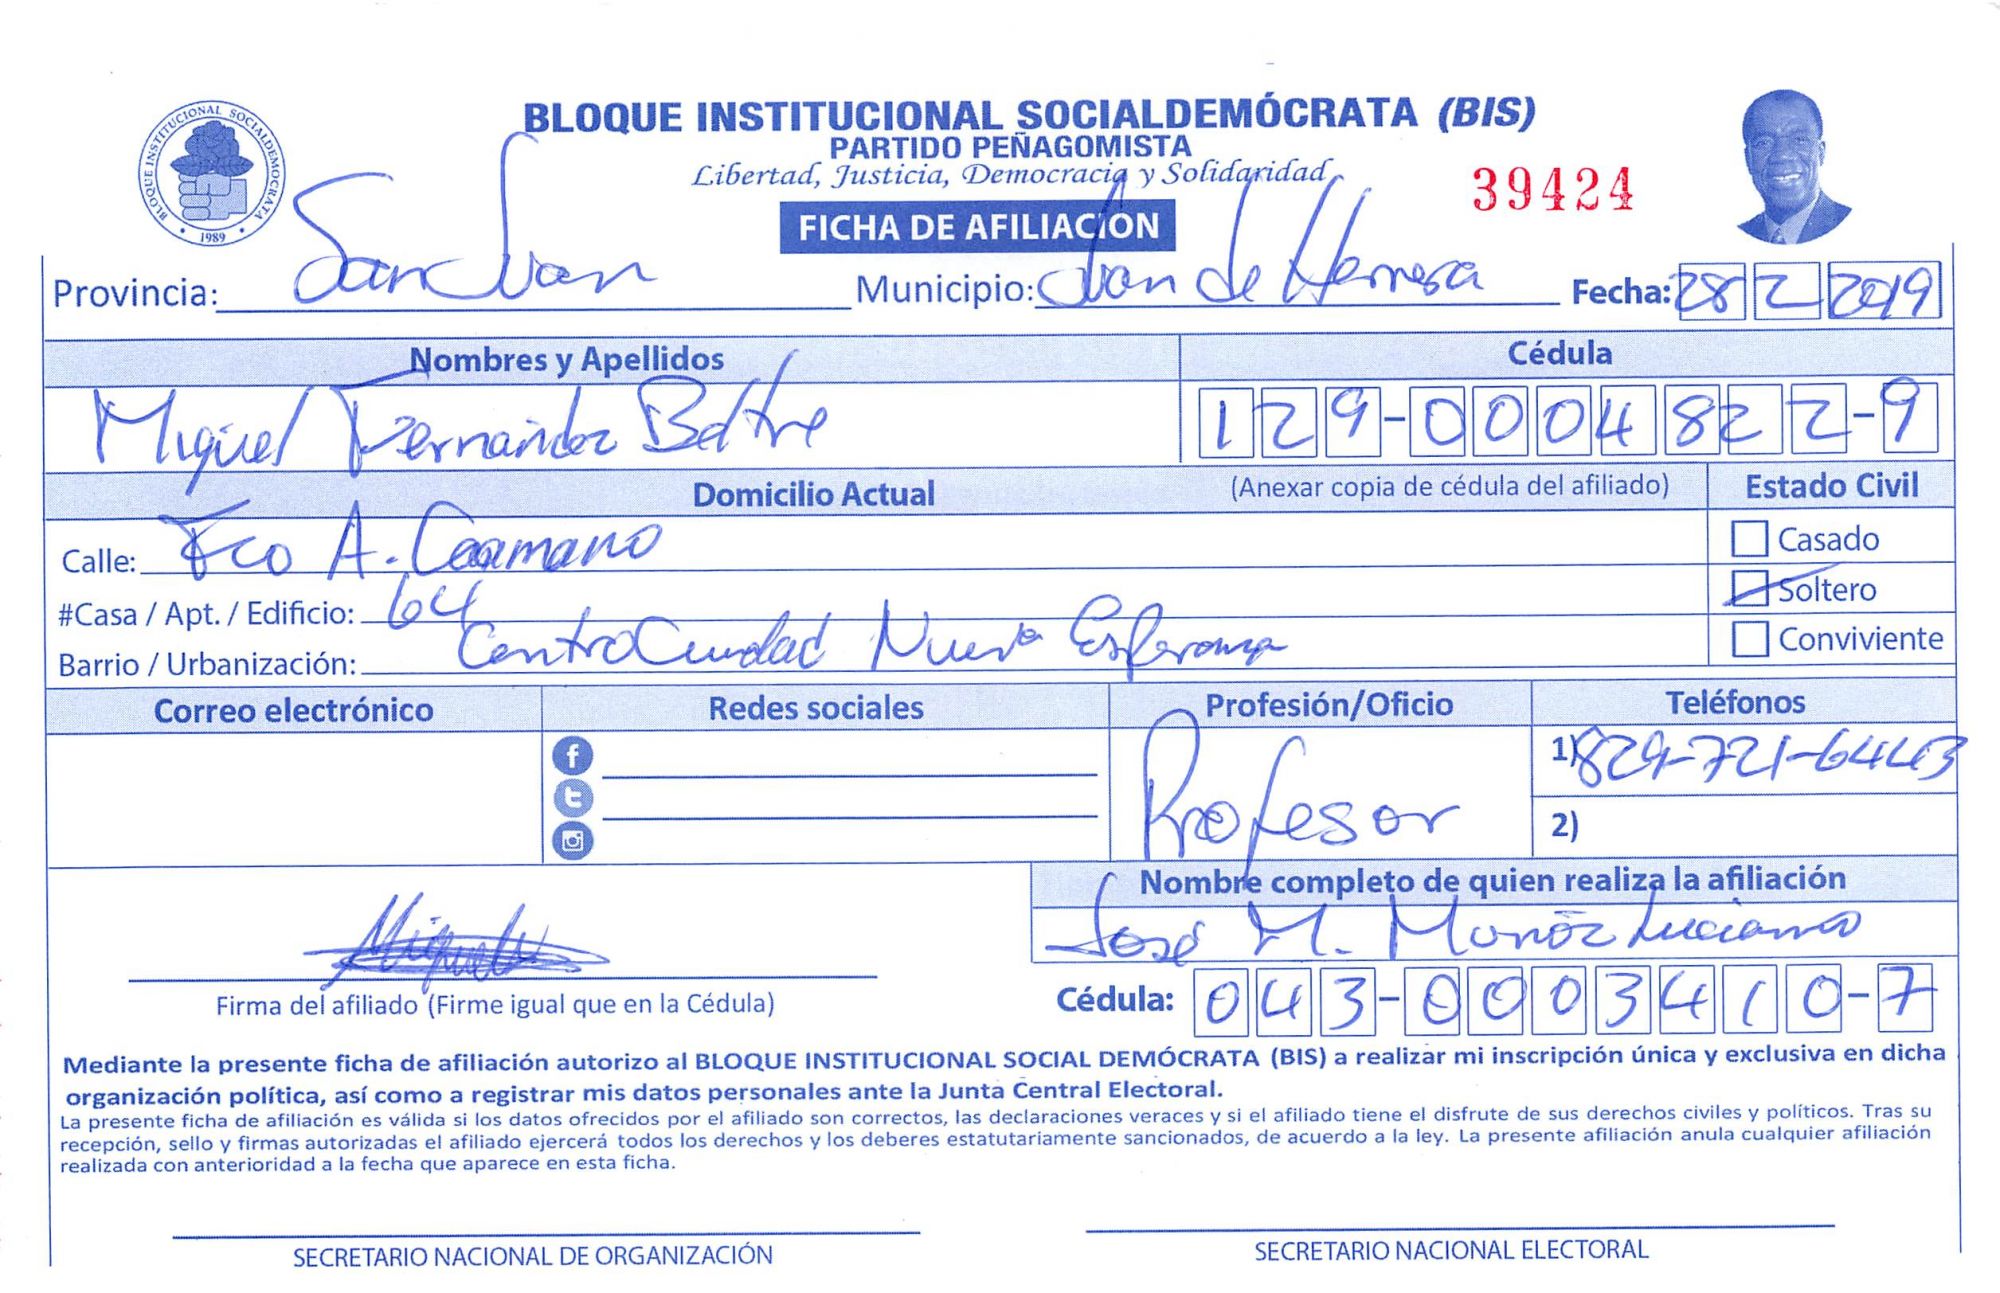 BLOQUE INSTITUCIONAL SOCIALDEMÓCRATA (BIS)
PARTIDO PEÑAGOMISTA
Libertad, Justicia, Democracia y Solidaridad
BLOQUE INSTITUCIONAL SOCIALDEMOCRATA
1989
39424
FICHA DE AFILIACIÓN
Provincia: San Juan Municipio: Juan de Herrera Fecha: 28 2 2019
Nombres y Apellidos Cédula
Miguel Fernández Bettre 129-0004822-9
Domicilio Actual (Anexar copia de cédula del afiliado) Estado Civil
Calle: Fco A. Caamano Casado
#Casa / Apt. / Edificio: 64 Soltero
Barrio / Urbanización: Centro Ciudad Nueva Esperanza Conviviente
Correo electrónico Redes sociales Profesión/Oficio Teléfonos
Profesor 1) 829-721-6443
2)
Nombre completo de quien realiza la afiliación
José M. Muñoz Luciano
Firma del afiliado (Firme igual que en la Cédula) Cédula: 043-0003410-7
Mediante la presente ficha de afiliación autorizo al BLOQUE INSTITUCIONAL SOCIAL DEMÓCRATA (BIS) a realizar mi inscripción única y exclusiva en dicha
organización política, así como a registrar mis datos personales ante la Junta Central Electoral.
La presente ficha de afiliación es válida si los datos ofrecidos por el afiliado son correctos, las declaraciones veraces y si el afiliado tiene el disfrute de sus derechos civiles y políticos. Tras su
recepción, sello y firmas autorizadas el afiliado ejercerá todos los derechos y los deberes estatutariamente sancionados, de acuerdo a la ley. La presente afiliación anula cualquier afiliación
realizada con anterioridad a la fecha que aparece en esta ficha.
SECRETARIO NACIONAL DE ORGANIZACIÓN SECRETARIO NACIONAL ELECTORAL